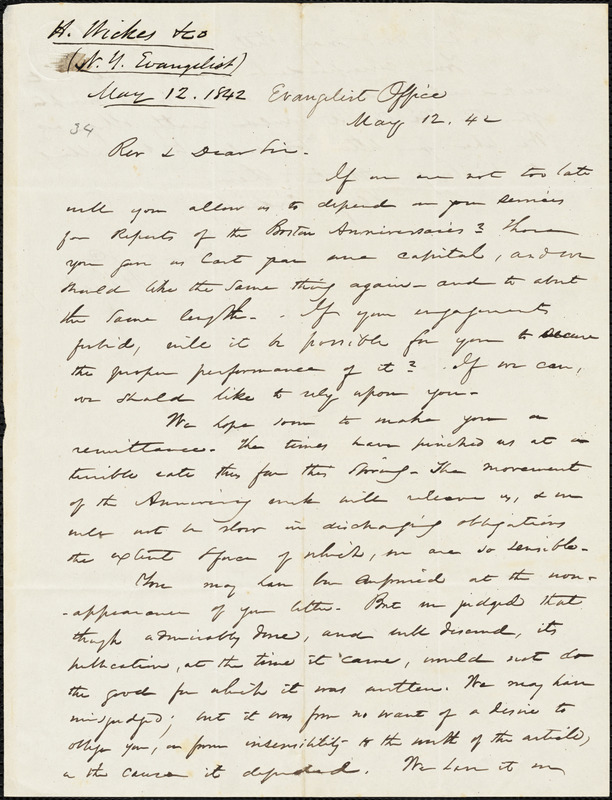 H. Wickes & Co
(N. Y. Evangelist)
May 12. 1842 Evangelist Office
May 12. 42
34
Rev & Dear Sir -
If we are not too late
will you allow us to depend on your services
for Reports of the Boston Anniversaries? Those
you gave us last year were capital, and we
should like the same thing again - and to about
the same length - . If your engagements
forbid, will it be possible for you to secure
the proper performance of it? . If we can,
we should like to rely upon you -
We hope soon to make you a
remittance. The times have pinched us at a
terrible rate thus far this Spring - The movement
of the Anniversary week will relieve us, & we
will not be slow in discharging obligations
the extent & force of which, we are so sensible -
You may have been surprised at the non-
-appearance of your letter - But we judged that
though admirably done, and well discussed, its
publication, at the time it came, would not do
the good for which it was written. We may have
misjudged; but it was from no want of a desire to
oblige you, or from insensibility to the worth of the article,
or the cause it defended. We have it on